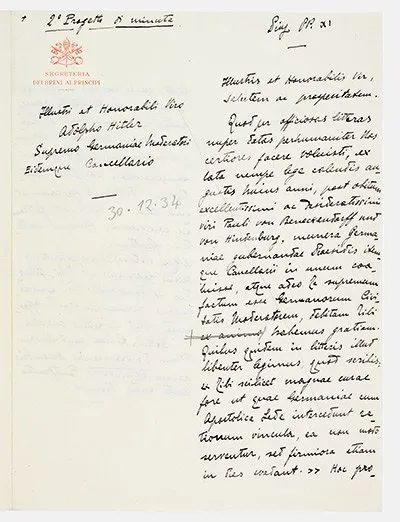 1 2° Progetto di minuta
SEGRETERIA
DEI BREVI AI PRINCIPI
Illustri et Honorabili Viro
Adolpho Hitler
Supremo Germaniae Moderatori
Eidemque Cancellario
30.12.34
Pius PP. XI
Illustris et Honorabilis Vir,
salutem ac prosperitatem.
Quod per officiosas litteras
nuper datas perhumaniter Nos
certiores facere voluisti, ex
lata nempe lege calendis au-
gustis huius anni, post obitum
excellentissimi ac desideratissimi
viri Pauli von Beneckendorff und
von Hindenburg, munera Germa-
niae gubernandae Praesidis idem-
que Cancellarii in unum coa-
luisse, atque adeo te supremum
factum esse Germanorum Civi-
tatis Moderatorem, debitam tibi
ex animo habemus gratiam.
Quibus quidem in litteris illud
libenter legimus, quod scribis,
ex tibi scilicet magnae curae
fore ut quae Germaniae cum
Apostolica Sede intercedunt ra-
tionum vincula, ea non modo
serventur, sed firmiora etiam
in dies evadant. >> Hoc pro-